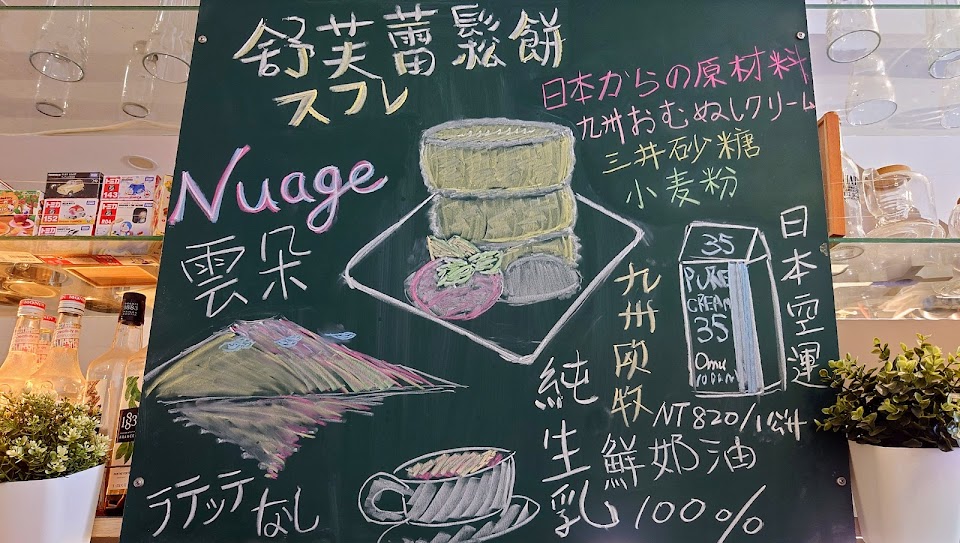 舒芙蕾鬆餅
スフレ
日本からの原材料
九州おむぬしクリーム
三井砂糖
小麦粉
Nuage
雲朵
35
PURE
CREAM
35
Omu
日本空運
九州欧牧
NT820/1公升
純生乳
鮮奶油
100%
ラテッテ
なし
143
152